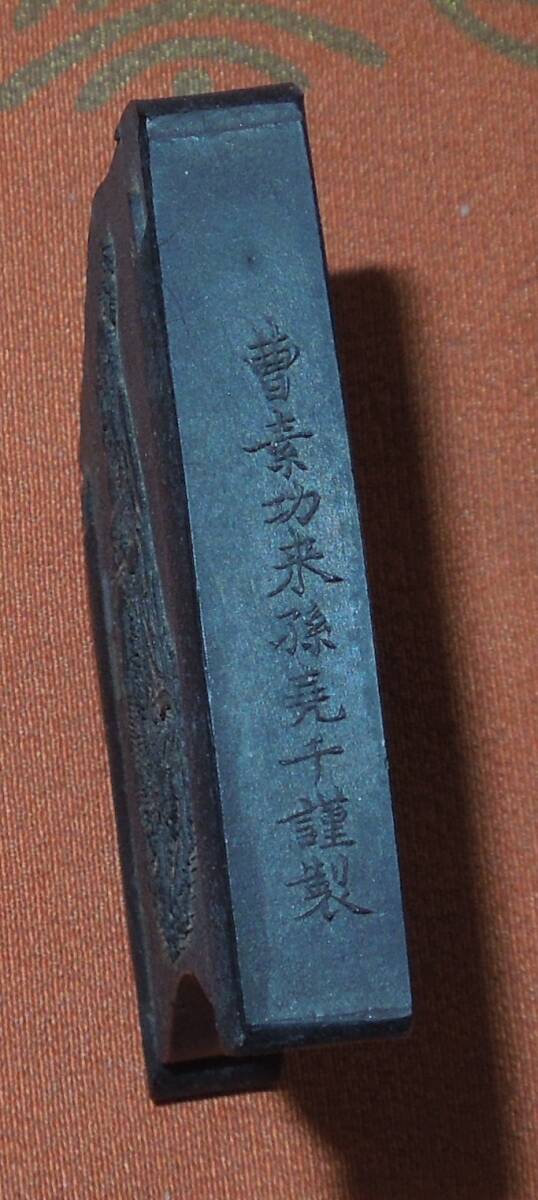 曹素功来孫堯千謹製